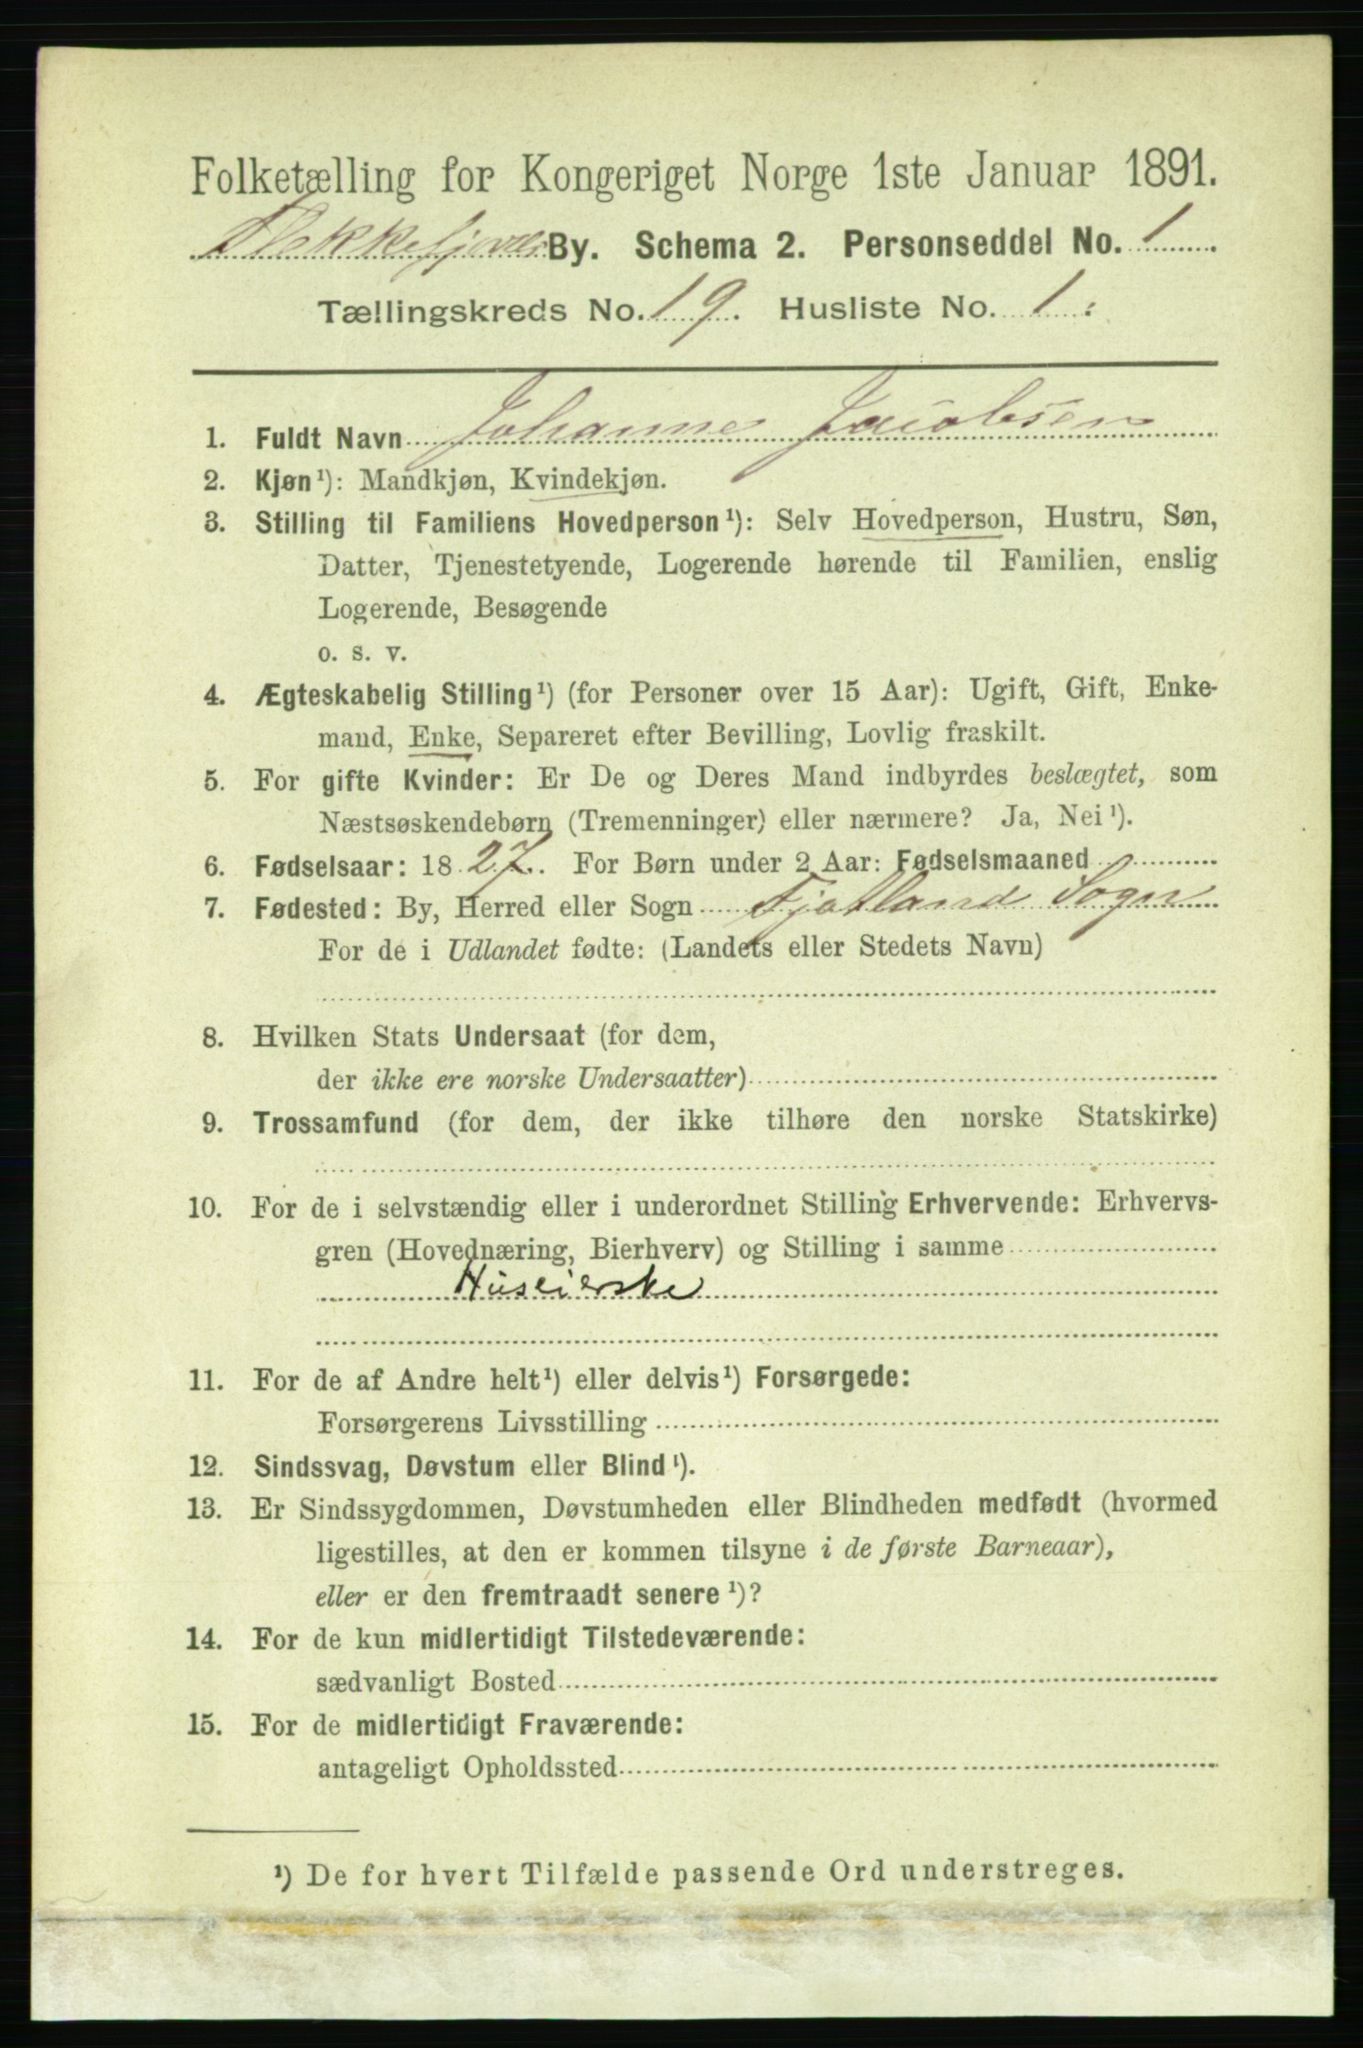 Folketælling for Kongeriget Norge 1ste Januar 1891.
Flekkefjords By. Schema 2. Personseddel No. 1.
Tællingskreds No. 19. Husliste No. 1.
1. Fuldt Navn Johanne Jacobsen
2. Kjøn¹): Mandkjøn, Kvindekjøn.
3. Stilling til Familiens Hovedperson¹): Selv Hovedperson, Hustru, Søn,
Datter, Tjenestetyende, Logerende hørende til Familien, enslig
Logerende, Besøgende
o. s. v.
4. Ægteskabelig Stilling¹) (for Personer over 15 Aar): Ugift, Gift, Enke-
mand, Enke, Separeret efter Bevilling, Lovlig fraskilt.
5. For gifte Kvinder: Er De og Deres Mand indbyrdes beslægtet, som
Næstsøskendebørn (Tremenninger) eller nærmere? Ja, Nei¹).
6. Fødselsaar: 1827. For Børn under 2 Aar: Fødselsmaaned
7. Fødested: By, Herred eller Sogn Fjotland Sogn
For de i Udlandet fødte: (Landets eller Stedets Navn)
8. Hvilken Stats Undersaat (for dem,
der ikke ere norske Undersaatter)
9. Trossamfund (for dem, der ikke tilhøre den norske Statskirke)
10. For de i selvstændig eller i underordnet Stilling Erhvervende: Erhvervs-
gren (Hovednæring, Bierhverv) og Stilling i samme
Huseierske
11. For de af Andre helt¹) eller delvis¹) Forsørgede:
Forsørgerens Livsstilling
12. Sindssvag, Døvstum eller Blind¹).
13. Er Sindssygdommen, Døvstumheden eller Blindheden medfødt (hvormed
ligestilles, at den er kommen tilsyne i de første Barneaar),
eller er den fremtraadt senere¹)?
14. For de kun midlertidigt Tilstedeværende:
sædvanligt Bosted
15. For de midlertidigt Fraværende:
antageligt Opholdssted
¹) De for hvert Tilfælde passende Ord understreges.